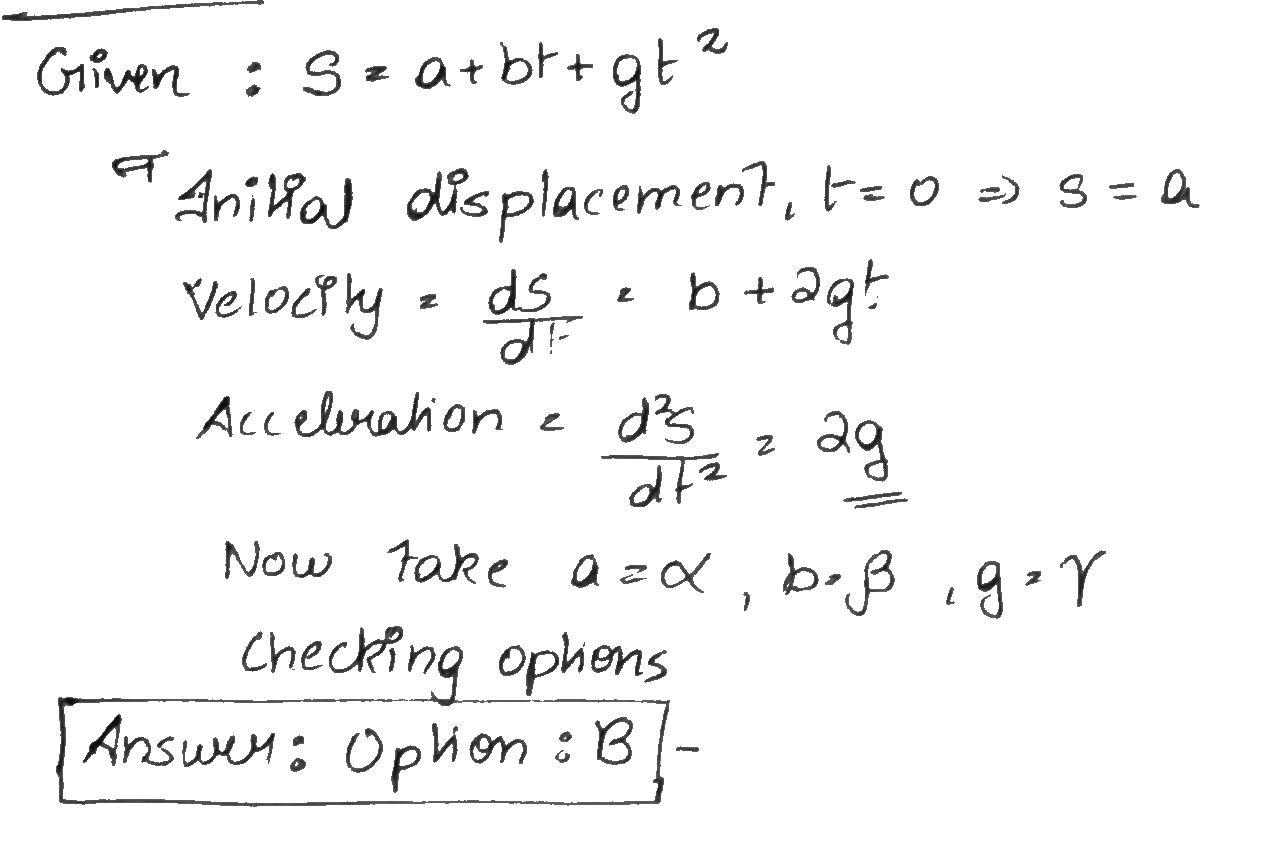 Given : S = a + bt + gt²
Initial displacement, t = 0 ⇒ s = a
Velocity = ds/dt = b + 2gt
Acceleration = d²s/dt² = 2g
Now take a = α, b = β, g = γ
Checking options
Answer: Option : B